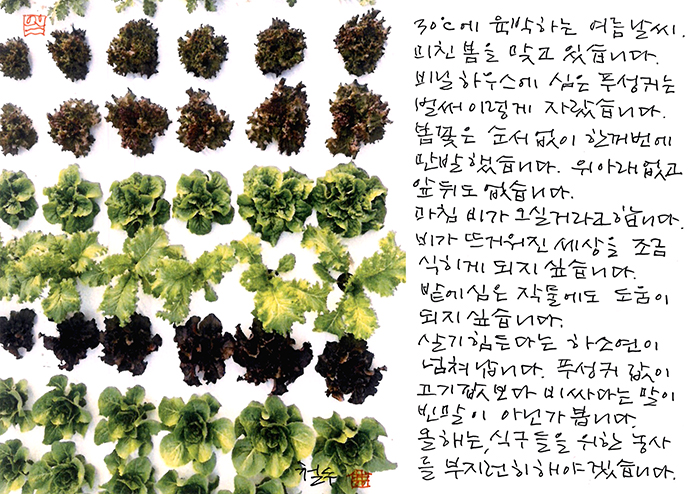 30℃에 육박하는 여름날씨.
미친 봄을 맞고 있습니다.
비닐하우스에 심은 푸성귀는
벌써 이렇게 자랐습니다.
봄꽃은 순서없이 한꺼번에
만발했습니다. 위아래없고
앞뒤도 없습니다.
마침 비가 오실거라고합니다.
비가 뜨거워진 세상을 조금
식히게 되지 싶습니다.
밭에심은 작물에도 도움이
되지 싶습니다.
살기힘든다는 하소연이
넘쳐납니다. 푸성귀 값이
고기값보다 비싸다는 말이
빈말이 아닌가 봅니다.
올해는, 식구들을 위한 농사
를 부지런히해야겠습니다.
철수